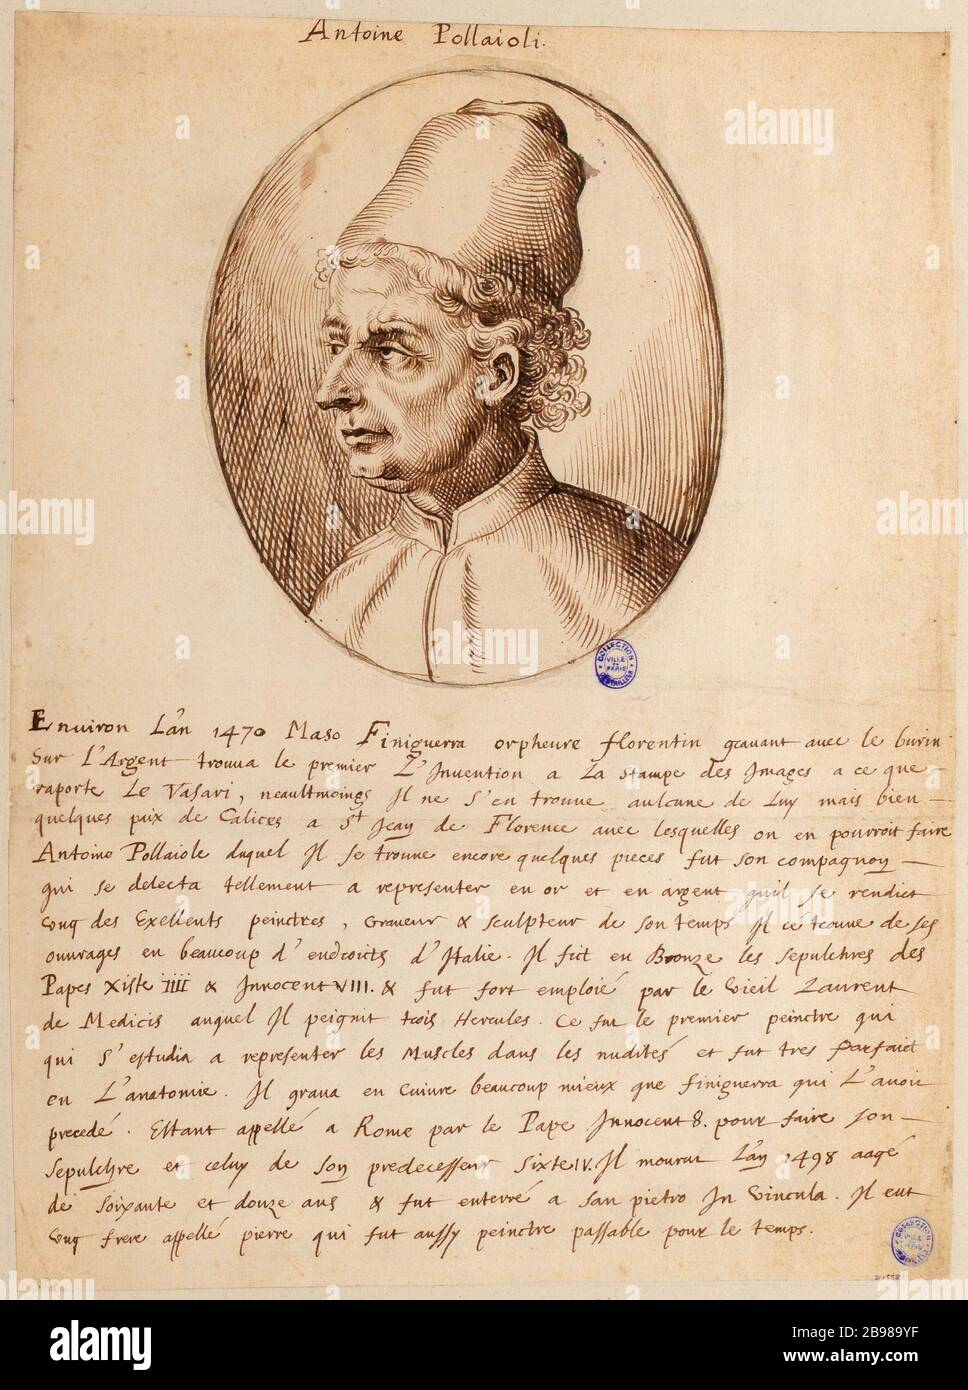 Antoine Pollaioli.
Environ L'an 1470 Maso Finiguerra orpheure florentin gravant avec le burin
Sur l'Argent trouva le premier L'Invention a La stampe des Images a ce que
raporte Le Vasari, neaultmoings Il ne s'en trouve aulcune de Luy mais bien
quelques paix de Calices a St Jean de Florence avec lesquelles on en pourroit faire
Antoine Pollaiole duquel Il se trouve encore quelques pieces fut son compagnon
qui se delecta tellement a representer en or et en argent quil se rendict
ung des Exellents peinctres, Graveur & sculpteur de son temps Il ce trouve de ses
ouvrages en beaucoup d'endroicts d'Italie. Il fict en Bronze les sepulchres des
Papes Xiste IIII & Innocent VIII. & fut fort emploié par le vieil Laurent
de Medicis auquel Il peignit trois Hercules. Ce fut le premier peinctre qui
qui s'estudia a representer les Muscles dans les nudités et fut tres parfaict
en L'anatomie. Il grava en cuivre beaucoup mieux que finiguerra qui L'avoit
precedé. Estant appellé a Rome par le Pape Innocent 8. pour faire son
sepulchre et celuy de son predecesseur Sixte IV. Il mourut L'an 1498 aagé
de soixante et douze ans & fut enterré a San pietro In Vincula. Il eut
ung frere appellé pierre qui fut aussy peinctre passable pour le temps.
COLLECTION
VILLE
DE
PARIS
DUTUIT
COLLECTION
VILLE
DE
PARIS
alamy
a
alamy
www.alamy.com
Image ID: 2B989YF